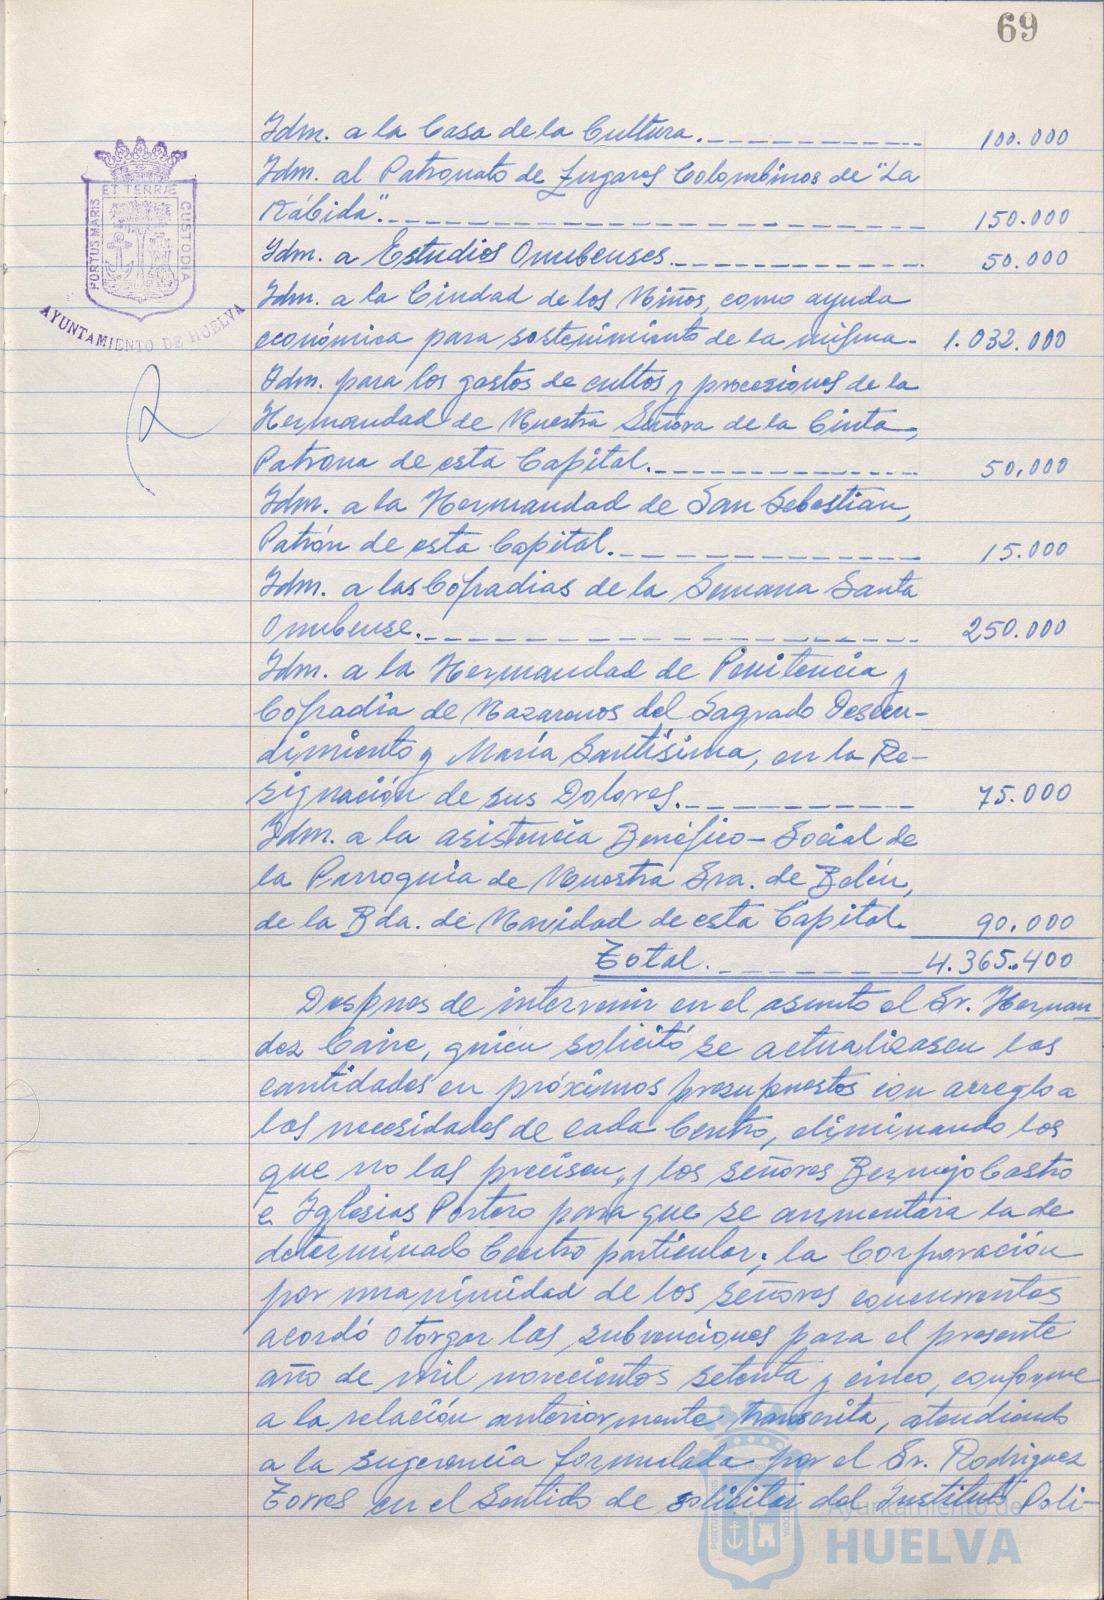 69
Idm. a la Casa de la Cultura. 100.000
Idm. al Patronato de Lugares Colombinos de "La
Rábida". 150.000
Idm. a Estudios Onubenses. 50.000
Idm. a la Ciudad de los Niños, como ayuda
económica para sostenimiento de la misma. 1.032.000
Idm. para los gastos de cultos y procesiones de la
Hermandad de Nuestra Señora de la Cinta,
Patrona de esta Capital. 50.000
Idm. a la Hermandad de San Sebastian,
Patrón de esta Capital. 15.000
Idm. a las Cofradias de la Semana Santa
Onubense. 250.000
Idm. a la Hermandad de Penitencia y
Cofradia de Nazarenos del Sagrado Descen-
dimiento y María Santísima, en la Re-
signación de sus Dolores. 75.000
Idm. a la asistencia Benéfico-Social de
la Parroquia de Nuestra Sra. de Belén,
de la Bda. de Navidad de esta Capital. 90.000
Total. 4.365.400
Despues de intervenir en el asunto el Sr. Hernan-
dez Cairo, quién solicitó se actualizasen las
cantidades en próximos presupuestos con arreglo a
las necesidades de cada Centro, eliminando los
que no las precisen, y los señores Bermejo Castro
e Iglesias Portero para que se aumentara la de
determinado Centro particular; la Corporación
por unanimidad de los señores concurrentes
acordó otorgar las subvenciones para el presente
año de mil novecientos setenta y cinco, conforme
a la relación anteriormente transcrita, atendiendo
a la sugerencia formulada por el Sr. Rodriguez
Torres en el sentido de solicitar del Instituto Poli-
PORTUS MARIS
ET TERRÆ
CUSTODIA
AYUNTAMIENTO DE HUELVA
Ayuntamiento de
HUELVA